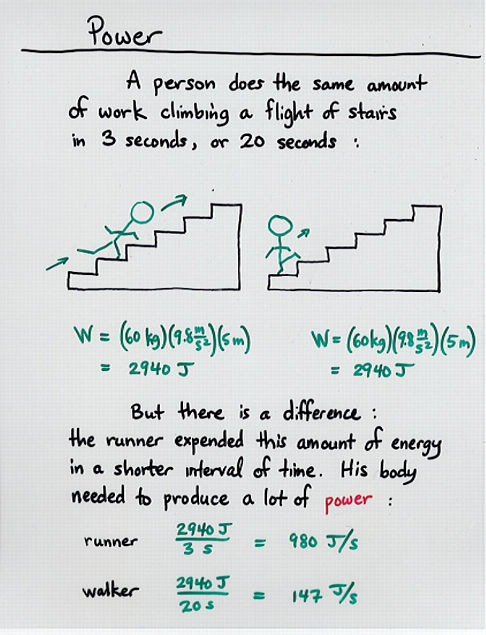 Power
A person does the same amount
of work climbing a flight of stairs
in 3 seconds, or 20 seconds :
W = (60 kg)(9.8 m/s²)(5m)
= 2940 J
W = (60kg)(9.8 m/s²)(5m)
= 2940 J
But there is a difference :
the runner expended this amount of energy
in a shorter interval of time. His body
needed to produce a lot of power :
runner 2940 J / 3 s = 980 J/s
walker 2940 J / 20 s = 147 J/s